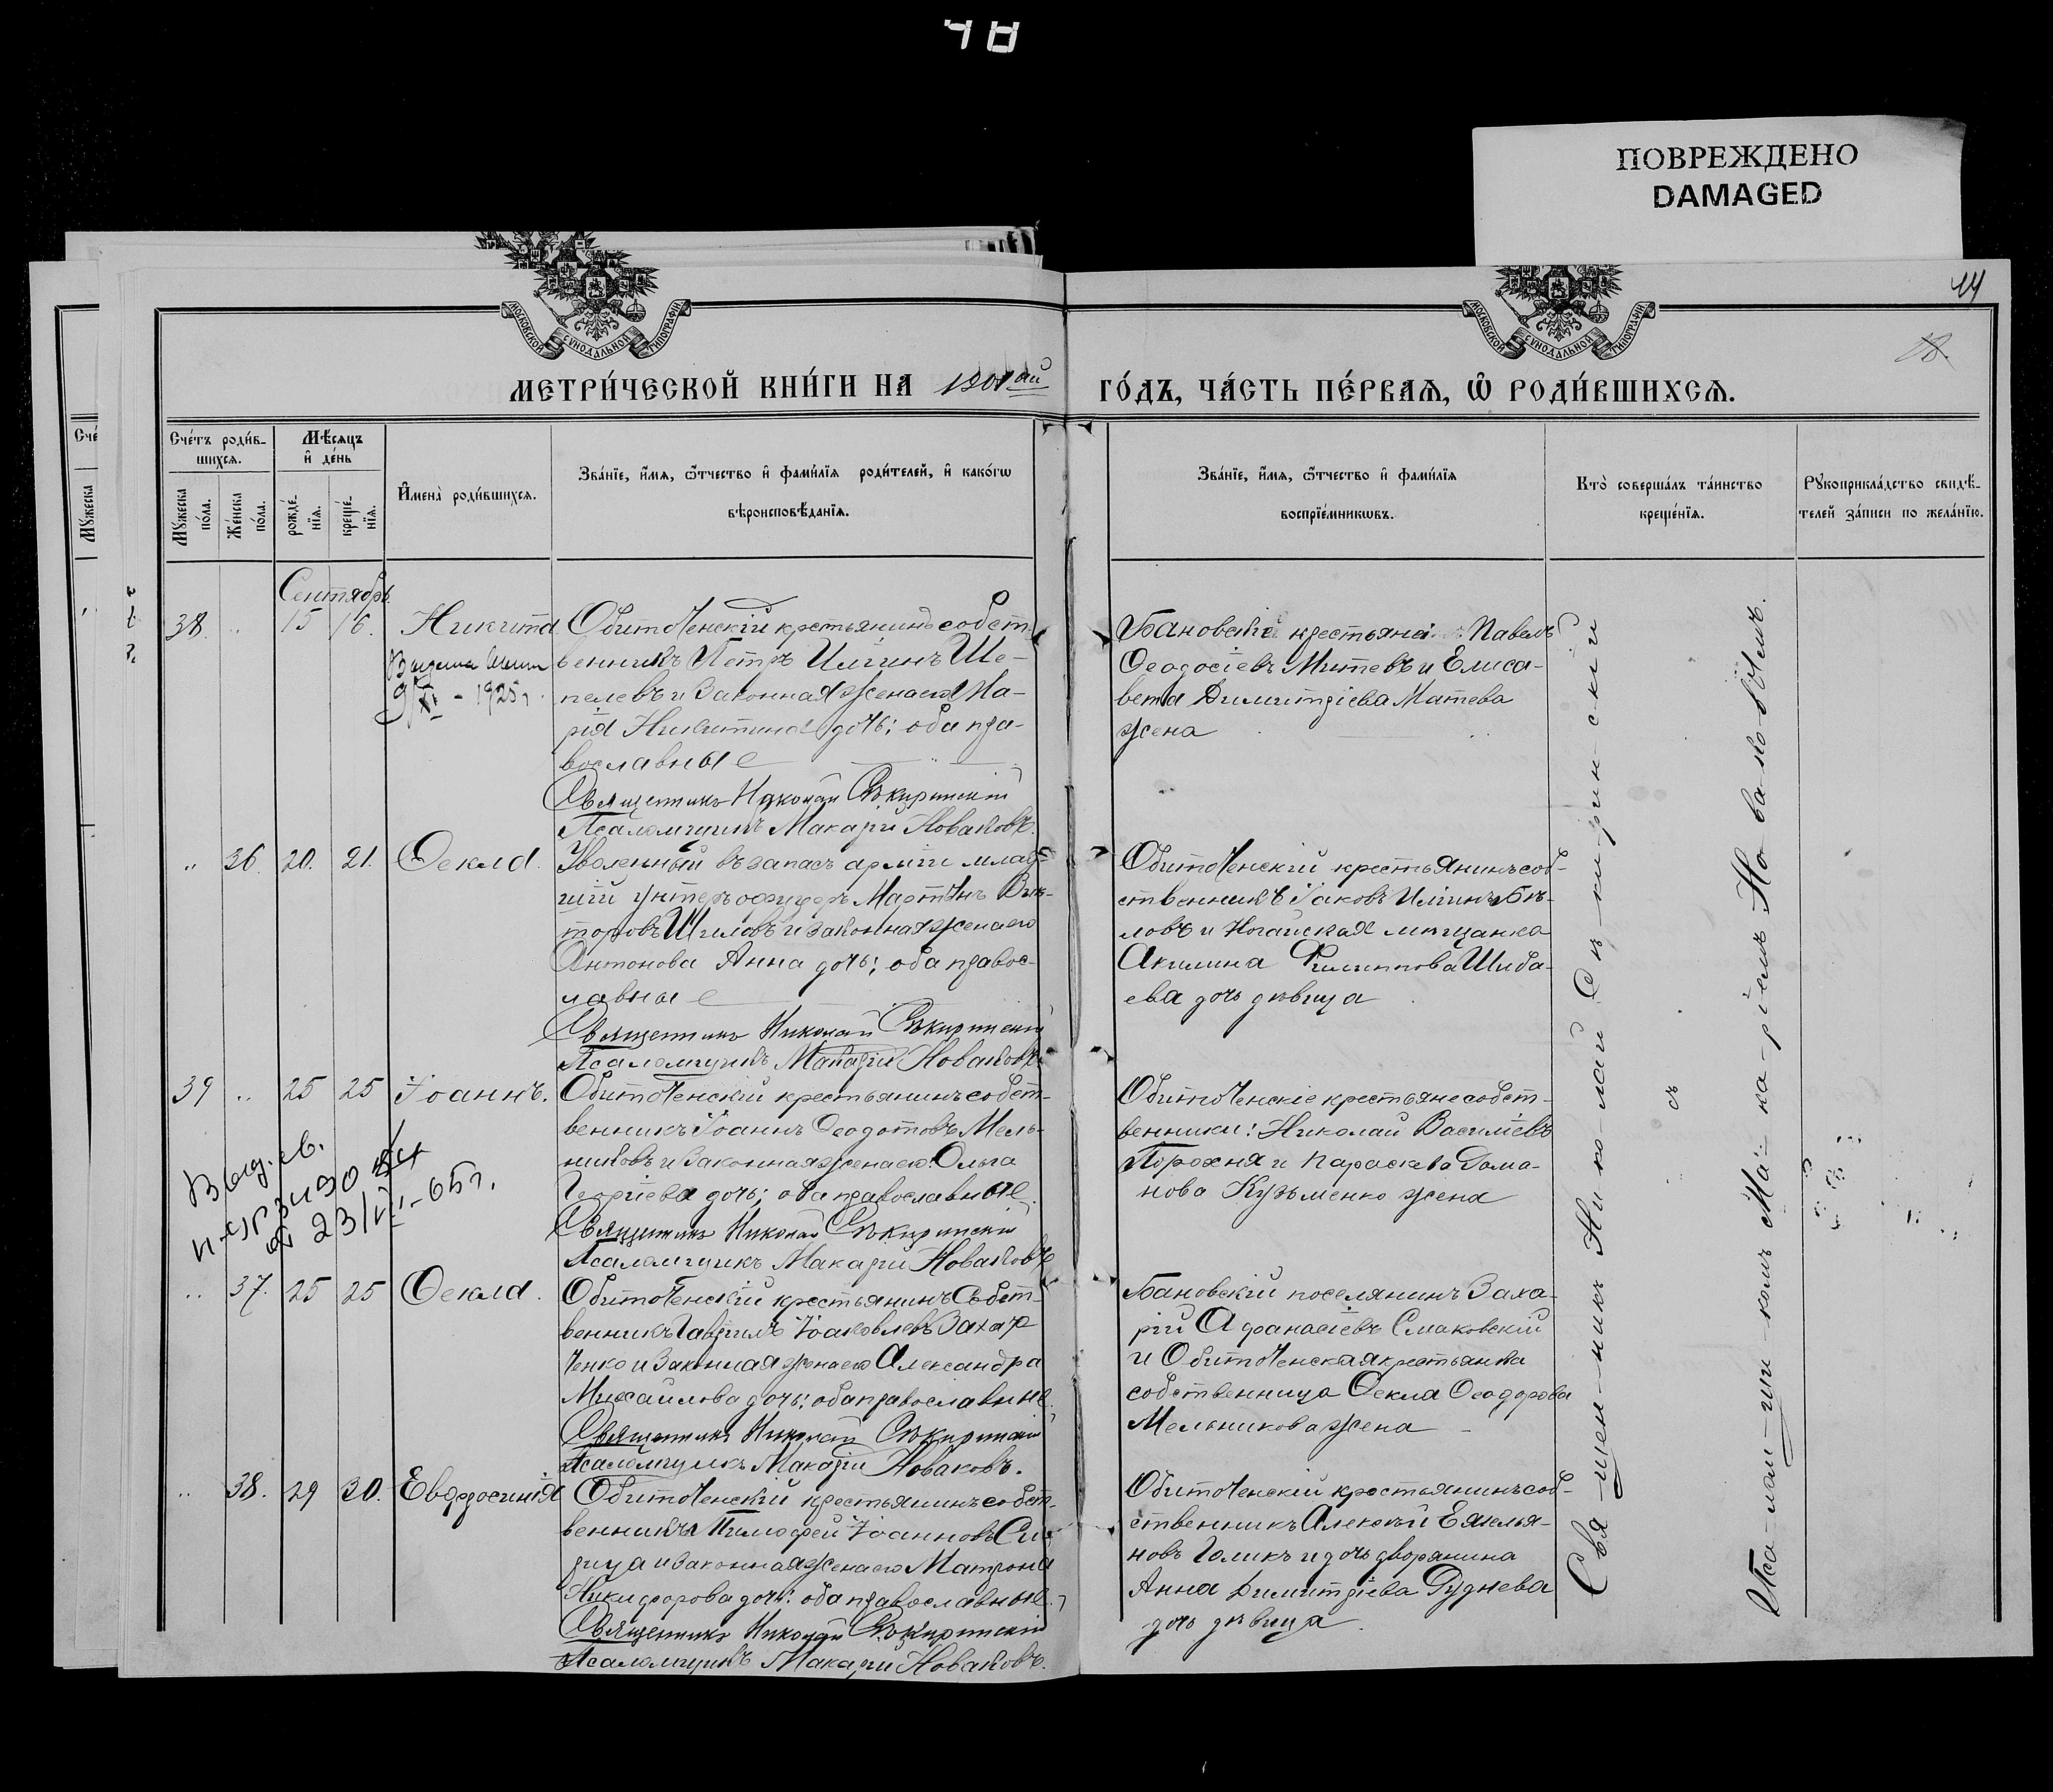 ПОВРЕЖДЕНО
DAMAGED
14
18.
МОСКОВСКОЙ СѴНОДАЛЬНОЙ ТИПОГРАФІИ
МОСКОВСКОЙ СѴНОДАЛЬНОЙ ТИПОГРАФІИ
МЕТРИ́ЧЕСКОЙ КНИ́ГИ НА 1901ый ГО́ДЪ, ЧА́СТЬ ПЕ́РВАЯ, Ѡ РОДИ́ВШИХСЯ.
Сче́
Мꙋжеска
Сче́тъ роди́в-
шихся.
Мꙋжеска
по́ла.
Же́нска
по́ла.
Мѣ́сяцъ
и де́нь
рожде́-
нїя.
креще́-
нїя.
И҆мена̀ роди́вшихся.
Зва́нїе, и҆́мя, ѻ҆́тчество и҆ фами́лїя роди́телей, и҆ како́гѡ
вѣроисповѣ́данїя.
Зва́нїе, и҆́мя, ѻ҆́тчество и҆ фами́лїя
воспрїе́мникѡвъ.
Кто̀ соверша́лъ та́инство
креще́нїя.
Рꙋкоприкла́дство свидѣ́-
телей за́писи по жела́нїю.
Сентябрь.
38. „ 15 16. Никита
9/XI - 1925 г.
Обиточенскій крестьянинъ собст-
венникъ Петръ Илiинъ Ше-
пелевъ и законная жена его Ма-
рія Никитина дочь; оба пра-
вославные
Священникъ Николай Сѣкиринскій
Псаломщикъ Макарій Новаковъ.
Бановскіе крестьяне: Павелъ
Ѳеодосіевъ Митевъ и Елиса-
вета Димитріева Матева
жена
„ 36. 20. 21. Ѳекла.
Уволенный въ запасъ арміи млад-
шій унтеръ офицеръ Мартинъ Вик-
торовъ Шиловъ и законная жена его
Антонова Анна дочь; оба правос-
лавные
Священникъ Николай Сѣкиринскій
Псаломщикъ Макарій Новаковъ.
Обиточенскій крестьянинъ соб-
ственникъ Іаковъ Илiинъ Бѣ-
ловъ и Ногайская мѣщанка
Акилина Филиппова Шиба-
ева дочь дѣвица
39 „ 25 25 Іоаннъ.
Выд. св.
23/VI-65г.
Обиточенскій крестьянинъ собст-
венникъ Іоаннъ Ѳеодотовъ Мель-
никовъ и законная жена его Ольга
Георгіева дочь; оба православные.
Священникъ Николай Сѣкиринскій
Псаломщикъ Макарій Новаковъ
Обиточенскіе крестьяне собст-
венники: Николай Василіевъ
Порохня и Параскева Рома-
нова Кузьменко жена
„ 37. 25 25 Ѳекла.
Обиточенскій крестьянинъ собст-
венникъ Гавріилъ Іоаковлевъ Захар
ченко и законная жена его Александра
Михайлова дочь; оба православные.
Священникъ Николай Сѣкиринскій
Псаломщикъ Макарій Новаковъ.
Бановскій поселянинъ Заха-
рій Афанасіевъ Смаковскій
и Обиточенская крестьянка
собственница Ѳекла Ѳеодорова
Мельникова жена
„ 38. 29 30. Евфросинія
Обиточенскій крестьянинъ собст-
венникъ Тимофей Іоанновъ Си-
рица и законная жена его Матрона
Никифорова дочь: оба православные.
Священникъ Николай Сѣкиринскій
Псаломщикъ Макарій Новаковъ.
Обиточенскій крестьянинъ соб-
ственникъ Алексѣй Емелья-
новъ Голикъ и дочь дворянина
Анна Димитріева Руднева
дочь дѣвица.
Свя-щен-никъ Ни-ко-лай Сѣ-ки-рин-скій
съ
Пса-лом-щи-комъ Ма-ка-ріемъ Но-ва-ко-вымъ.